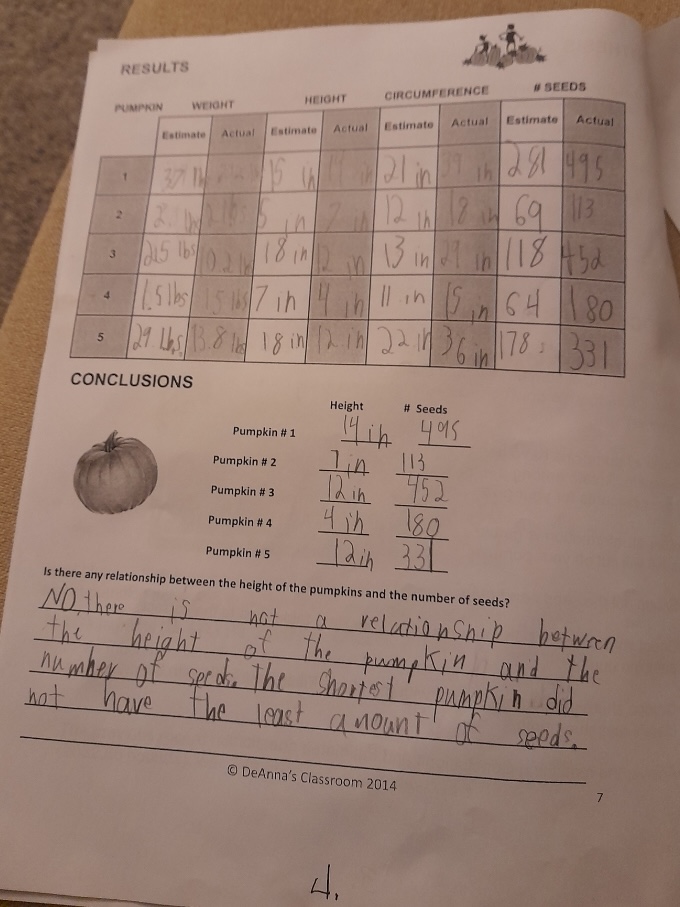 RESULTS
PUMPKIN WEIGHT HEIGHT CIRCUMFERENCE # SEEDS
Estimate Actual Estimate Actual Estimate Actual Estimate Actual
1 15 in 14 in 21 in 39 in 281 495
2 5 in 7 in 12 in 18 in 69 113
3 21.5 lbs 10.2 lb 18 in 12 in 13 in 29 in 118 452
4 1.5 lbs 1.5 lbs 7 in 4 in 11 in 15 in 64 180
5 29 lbs. 13.8 lbs 18 in 12 in 22 in 36 in 178 331
CONCLUSIONS
Height # Seeds
Pumpkin # 1 14 in 495
Pumpkin # 2 7 in 113
Pumpkin # 3 12 in 452
Pumpkin # 4 4 in 180
Pumpkin # 5 12 in 331
Is there any relationship between the height of the pumpkins and the number of seeds?
NO, there is not a relationship between
the height of the pumpkin and the
number of seeds. The shortest pumpkin did
not have the least amount of seeds.
© DeAnna's Classroom 2014
7
4.